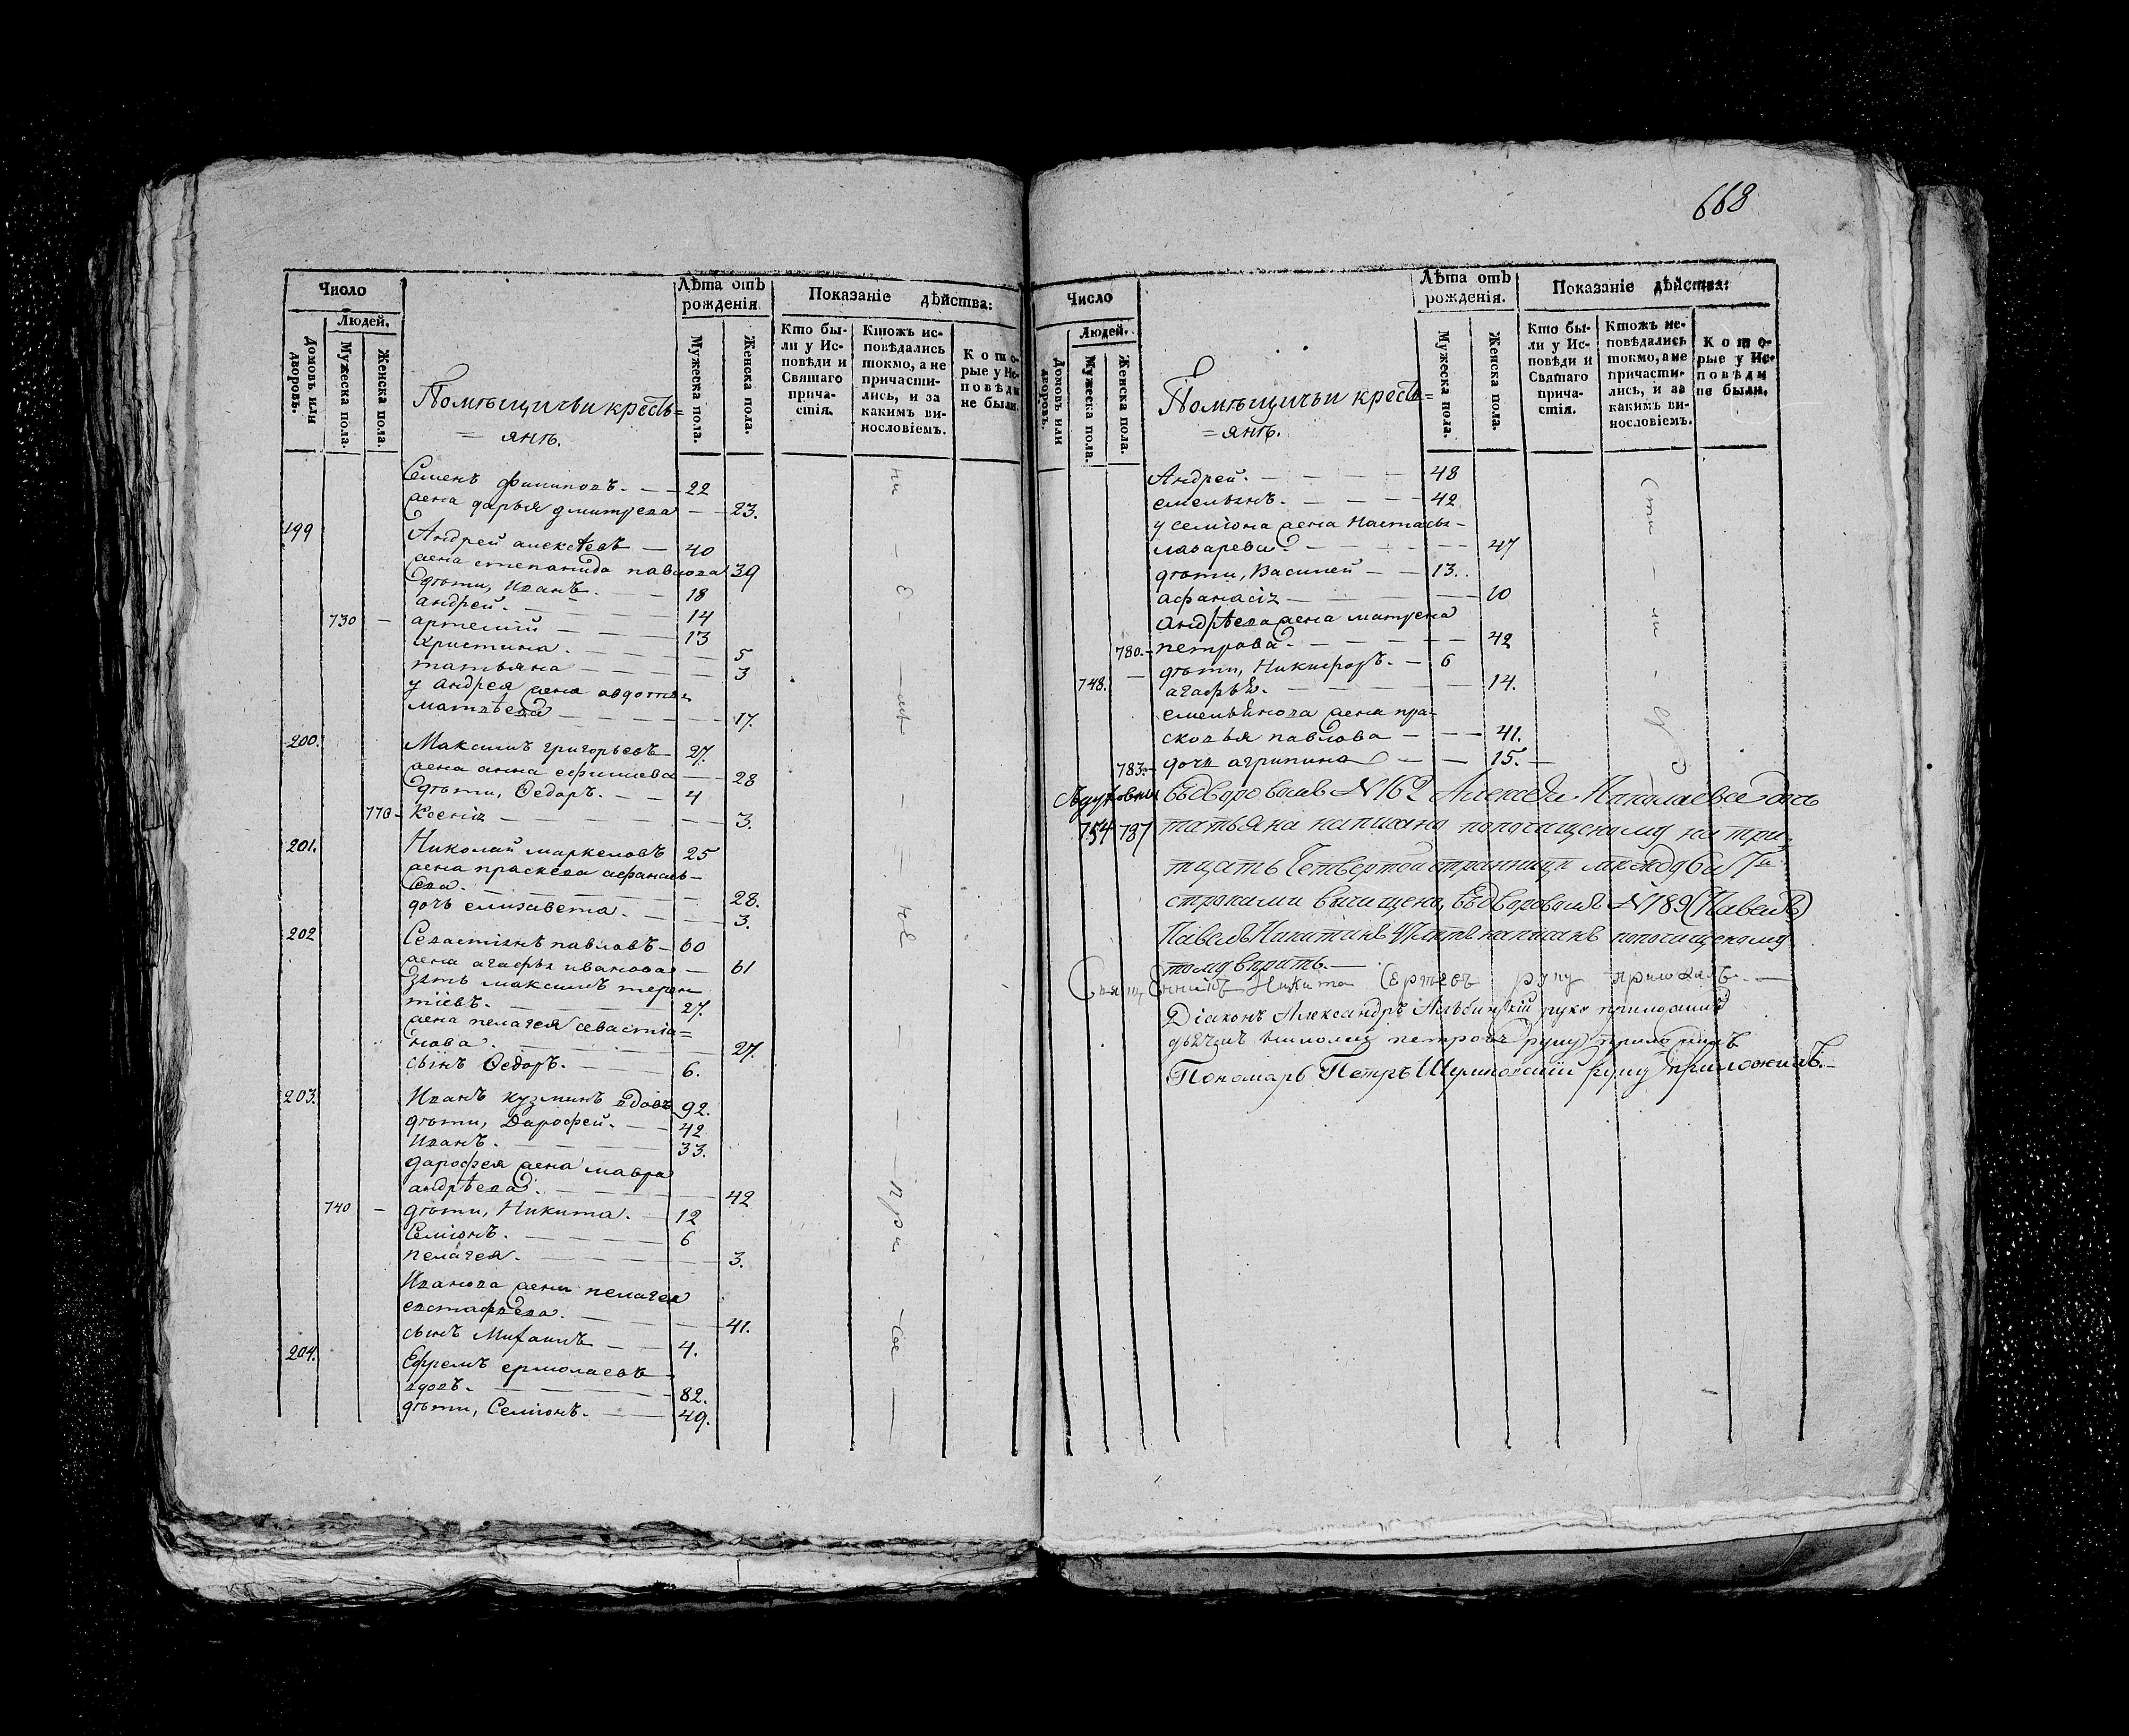 Число
Людей.
Домовъ или дворовъ.
Мужеска пола.
Женска пола.
Помѣщичьи кресть=
= янѣ.
Лѣта отъ
рожденія
Мужеска пола.
Женска пола.
Показаніе дѣйства:
Кто бы-
ли у Ис-
повѣди и
Святаго
прича-
стія.
Ктожъ ис-
повѣдались
токмо, а не
причасти-
лись, и за
какимъ ви-
нословіемъ.
Кото-
рые у Ис-
повѣди
не были.
Семенъ филиповъ. — — 22
жена дарья дмитрева — — 23.
199 Андрей алексѣевъ — 40
жена степанида павлова 39
дѣти, Иванъ. — — 18
андрей. — — — 14
730 — артемій — — — 13
Христина. — — — 5
татьяна — — — 3
у андрея жена авдотья
матвѣева — — — 17.
200. Максимъ григорьевъ 27.
жена анна ефимова — 28
дѣти, Ѳедоръ. — — 4
770 — Ксенія — — — 3.
201. Николай маркеловъ 25
жена прасковья афанась-
ева. — — — 28.
дочь елизавета. — — 3.
202 Севастіянъ павловъ — 60
жена агафья иванова — 61
Зять максимъ терен
тіевъ. — — — 27.
жена пелагея севастіа=
нова. — — — 27.
сынъ Ѳедоръ. — — 6.
203. Иванъ кузминъ вдовъ 92.
дѣти, Дарофей. — — 42
Иванъ. — — — 33.
дарофея жена мавра
андрѣева. — — — 42
740 — дѣти, Никита. — 12
Семіонъ. — — — 6
пелагея. — — — 3.
Иванова жена пелагея
евстафьева. — — — 41.
сынъ Михаилъ — — 4.
204. Ефремъ ермолаевъ
вдовъ. — — — 82.
дѣти, Семіонъ. — — 49.
668
Число
Людей.
Домовъ или дворовъ.
Мужеска пола.
Женска пола.
Помѣщичьи кресть=
= янѣ.
Лѣта отъ
рожденія.
Мужеска пола.
Женска пола.
Показаніе дѣйства:
Кто бы-
ли у Ис-
повѣди и
Святаго
прича-
стія.
Ктожъ ис-
повѣдались
токмо, а не
причасти-
лись, и за
какимъ ви-
нословіемъ.
Кото-
рые у Ис-
повѣди
не были.
Андрей. — — — 48
емельянъ. — — — 42
у семіона жена Настасья
лазарева. — — — 47
дѣти, Василей — — 13.
афанасія — — — 10
Андрѣева жена матрена
780. — петрова. — — — 42
дѣти, Никифоръ. — 6
748. — агафья. — — — 14.
емельянова жена пра-
сковья павлова — — 41.
783. — дочь агрипина — — 15. —
Съдуховными въдворовомъ №162 Алексея Николаева дочь
754 787 татьяна написана поподчищеному на три-
тцать Четвертой странице между 6 и 7й
строками вычищено, въдворовомъ №189 (Павелъ)
Павелъ Никитинъ 47лѣтъ написанъ поподчищеному
Священникъ Никита Сергеевъ руку приложилъ. —
Діаконъ Александръ руку приложилъ
дьячекъ николай петровъ руку приложилъ
Пономарь Петръ руку приложилъ. —